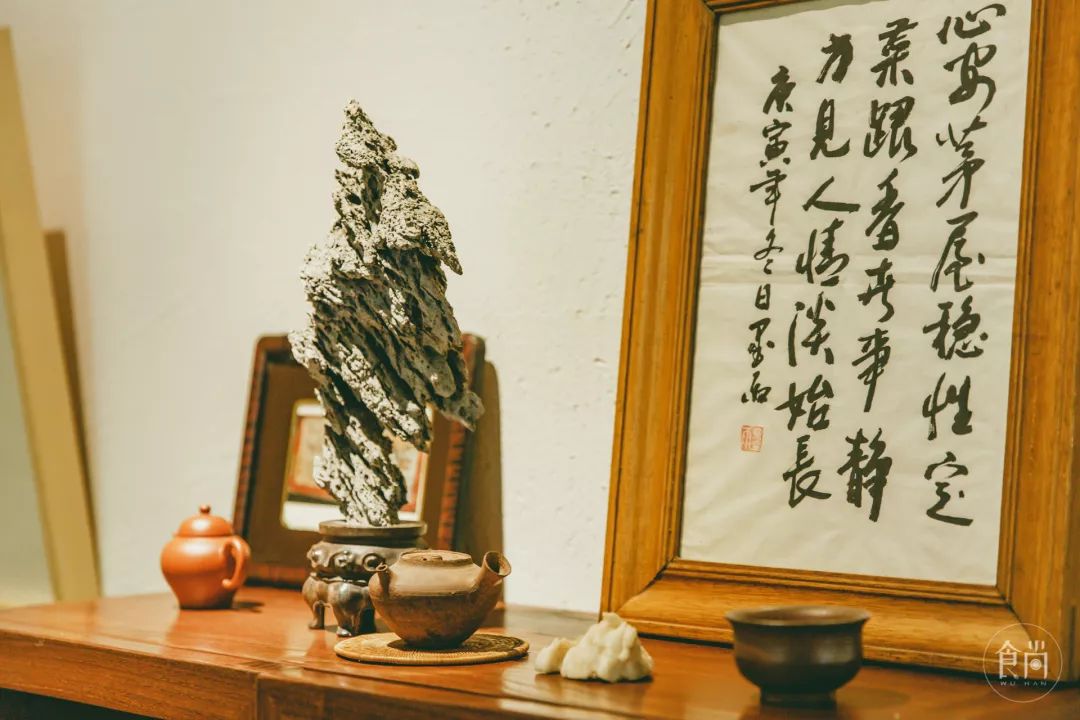 心安茅屋稳性定
菜跟香世事静
方見人情淡始長
庚寅年冬日
食尚
WU HAN